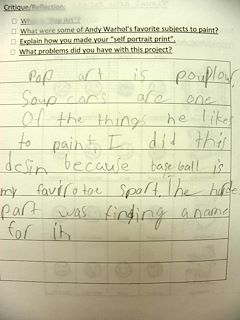 Critique/Reflection:
What is "Pop Art"?
What were some of Andy Warhol's favorite subjects to paint?
Explain how you made your "self portrait print".
What problems did you have with this project?
Pop art is pouplou,
Soup cans are one
Of the things he likes
to paint, I did this
desin because baseball is
my favirotoe sport. The harde
part was finding a name
for it